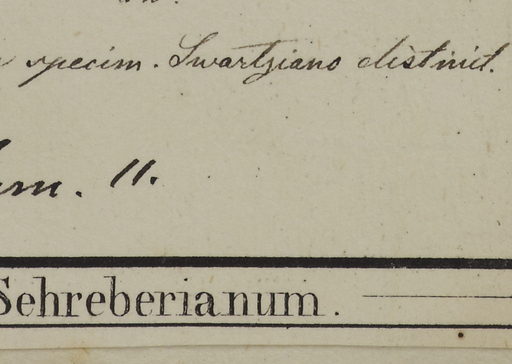 specim. Swartziano distinct.
um. 11.
Schreberianum.